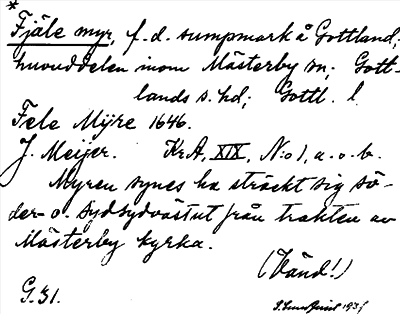 *
Fjäle myr, f.d. sumpmark å Gottland;
huvuddelen inom Mästerby sn; Gott-
lands s. hd; Gottl. l.
Fele Mÿre 1646.
J. Meijer. KrA, XIX, N:o 1, a. o. b.
Myren synes ha sträckt sig sö-
der- o. sydsydvästut från trakten av
Mästerby kyrka.
(Vänd!)
G. 31.
1937